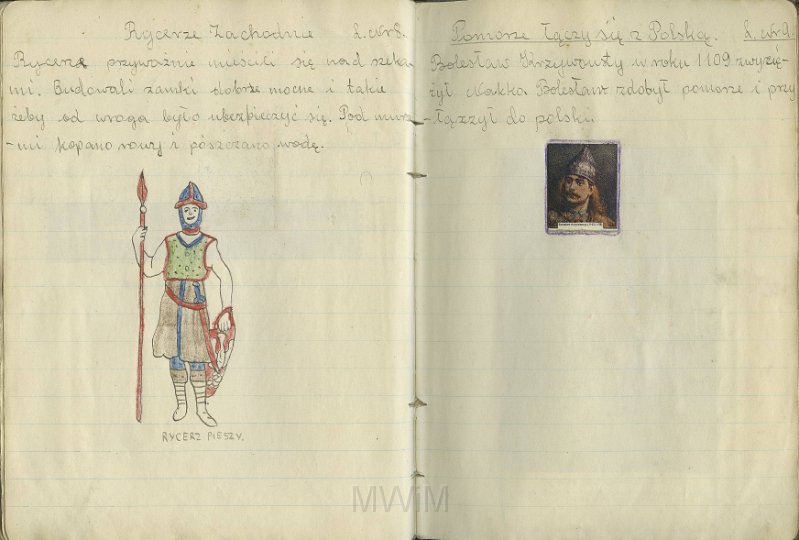 Rycerze Zachodnie L. Nr 8.
Rycerze przyważnie mieścili się nad rzeka-
mi. Budowali zamki dobrze mocne i takie
żeby od wroga było ubezpieczyć się. Pod mura-
-mi kopano rowy i pószczano wodę.
RYCERZ PIESZY.
Pomorze łączy się z Polską. L. Nr 9.
Bolesław Krzywousty w roku 1109 zwycię-
żył Nakło Bolesław zdobył pomorze i przy
-łączył do polski.
MWiM